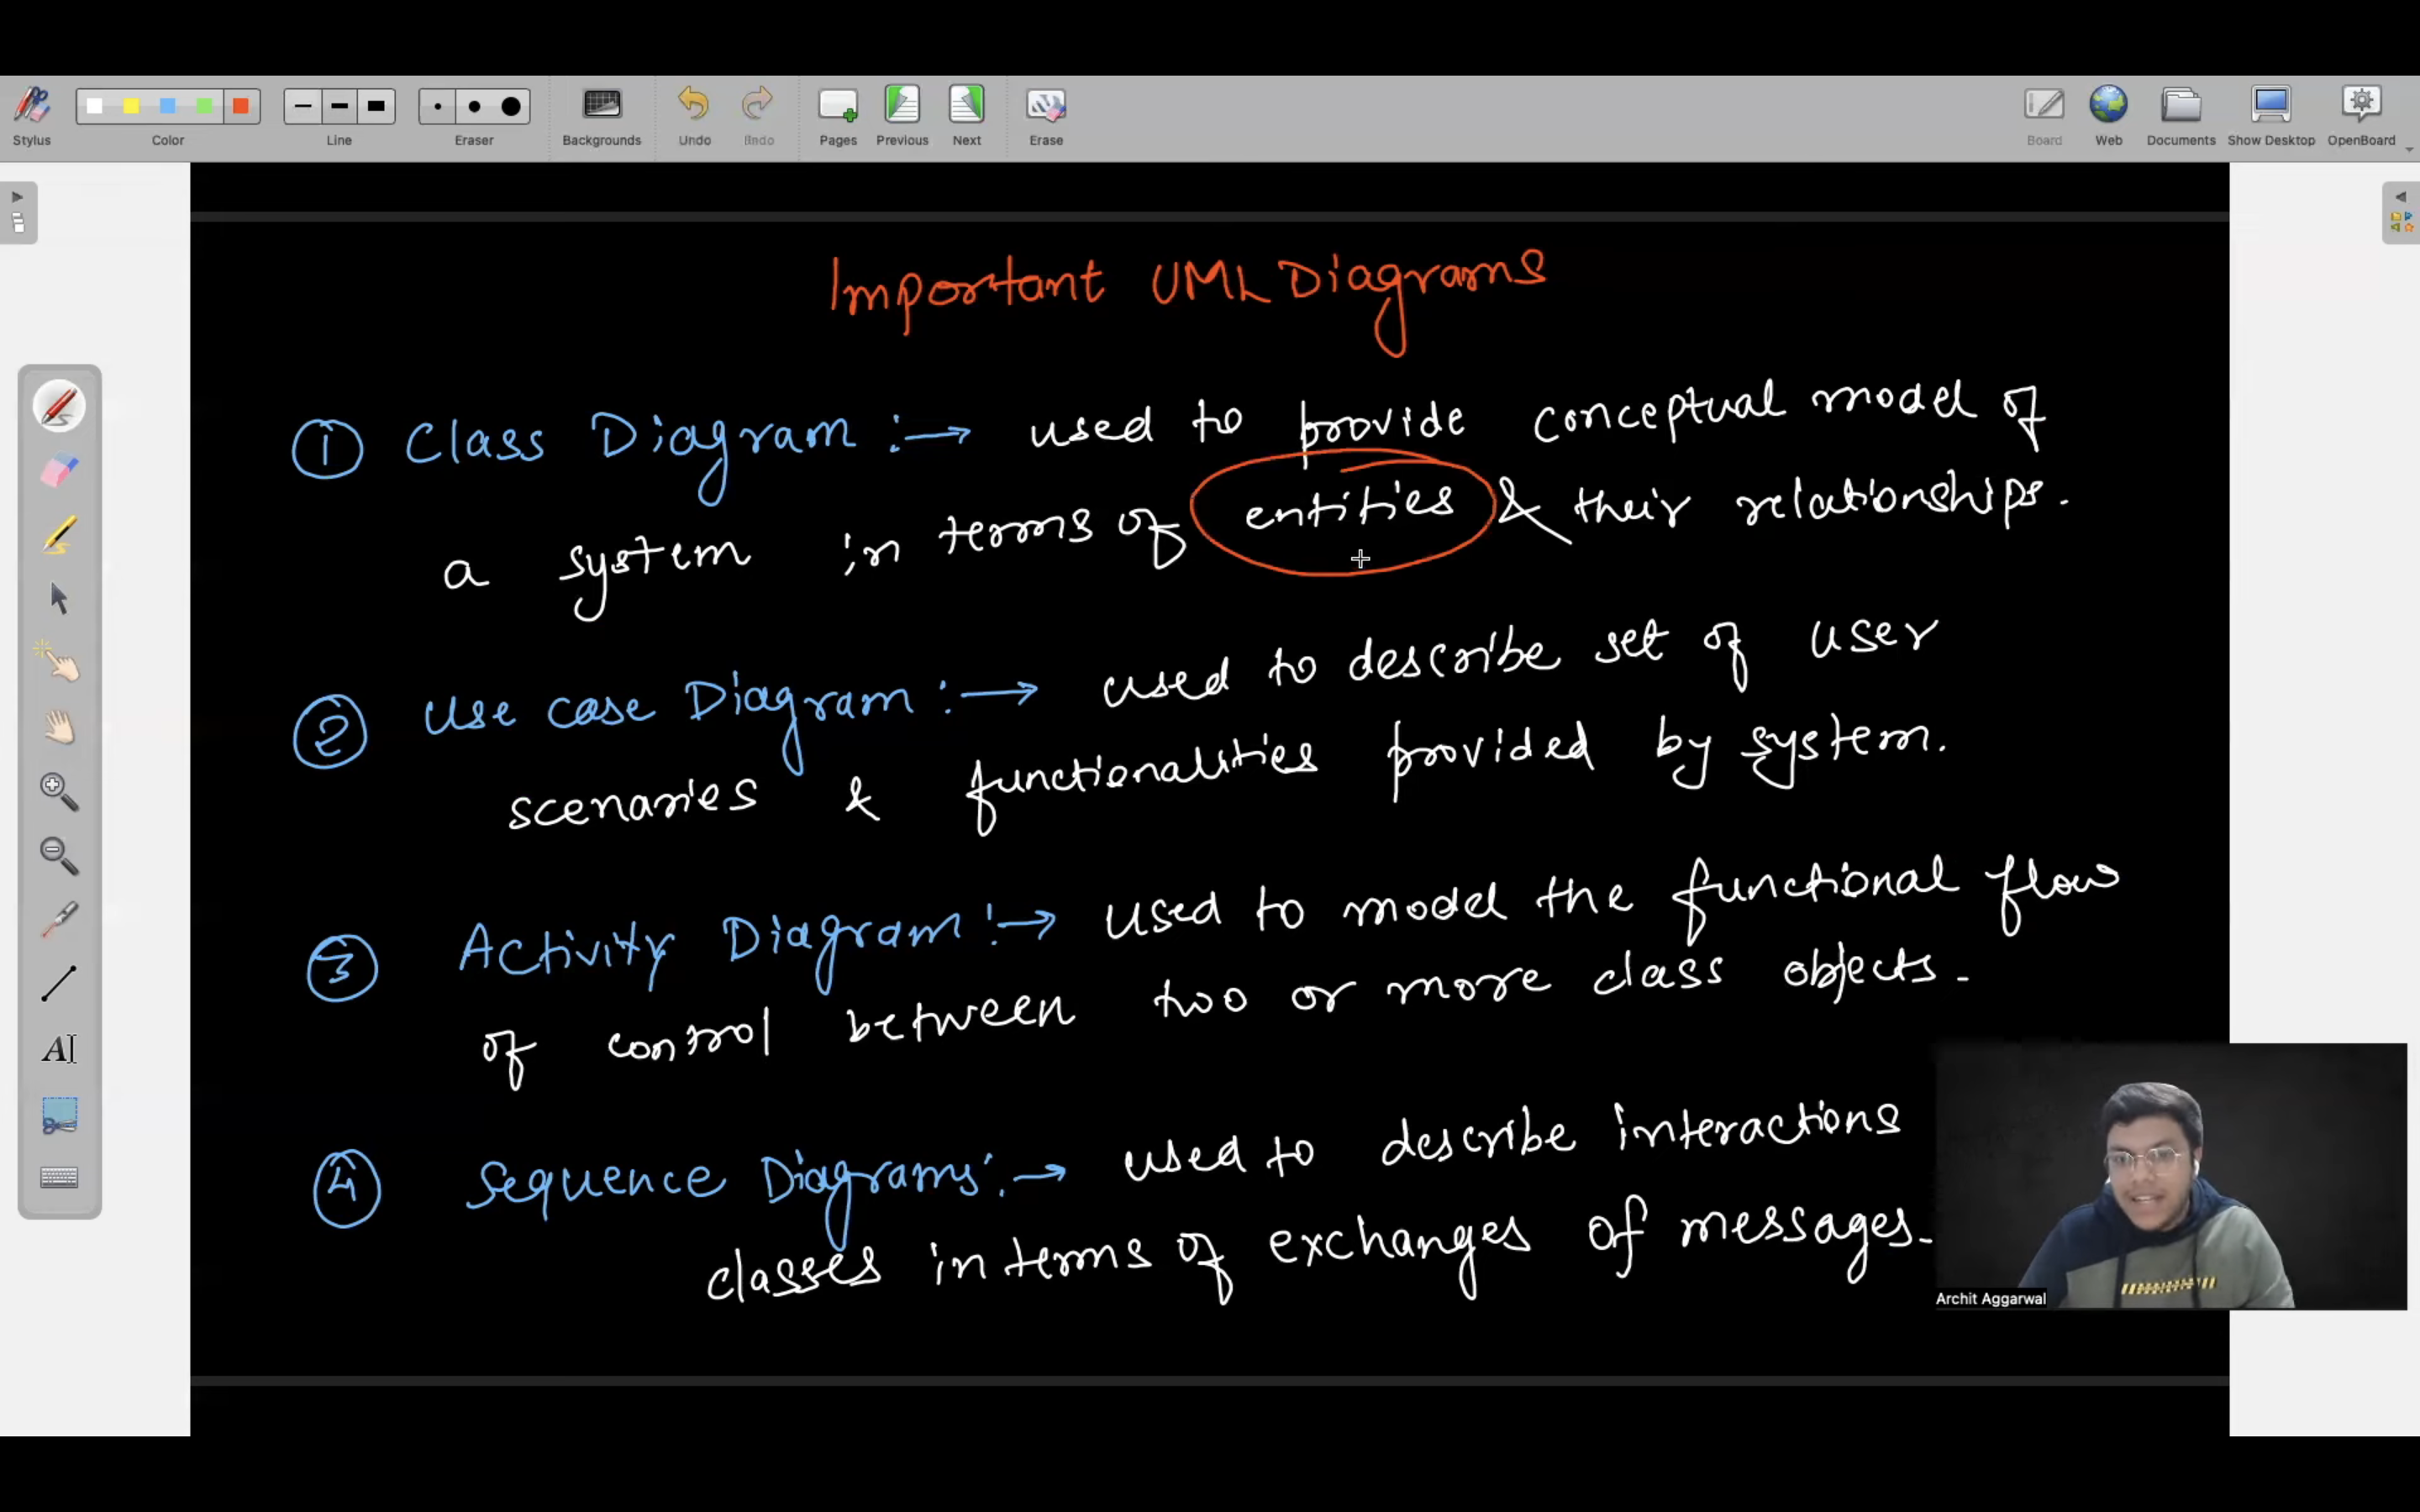 Stylus
Color
Line
Eraser
Backgrounds
Undo
Redo
Pages
Previous
Next
Erase
Board
Web
Documents
Show Desktop
OpenBoard
Important UML Diagrams
① Class Diagram :→ used to provide conceptual model of
a system in terms of entities & their relationships.
② Use case Diagram :→ used to describe set of user
scenaries & functionalities provided by system.
③ Activity Diagram :→ used to model the functional flow
of control between two or more class objects.
④ Sequence Diagrams :→ used to describe interactions
classes in terms of exchanges of messages.
AI
Archit Aggarwal